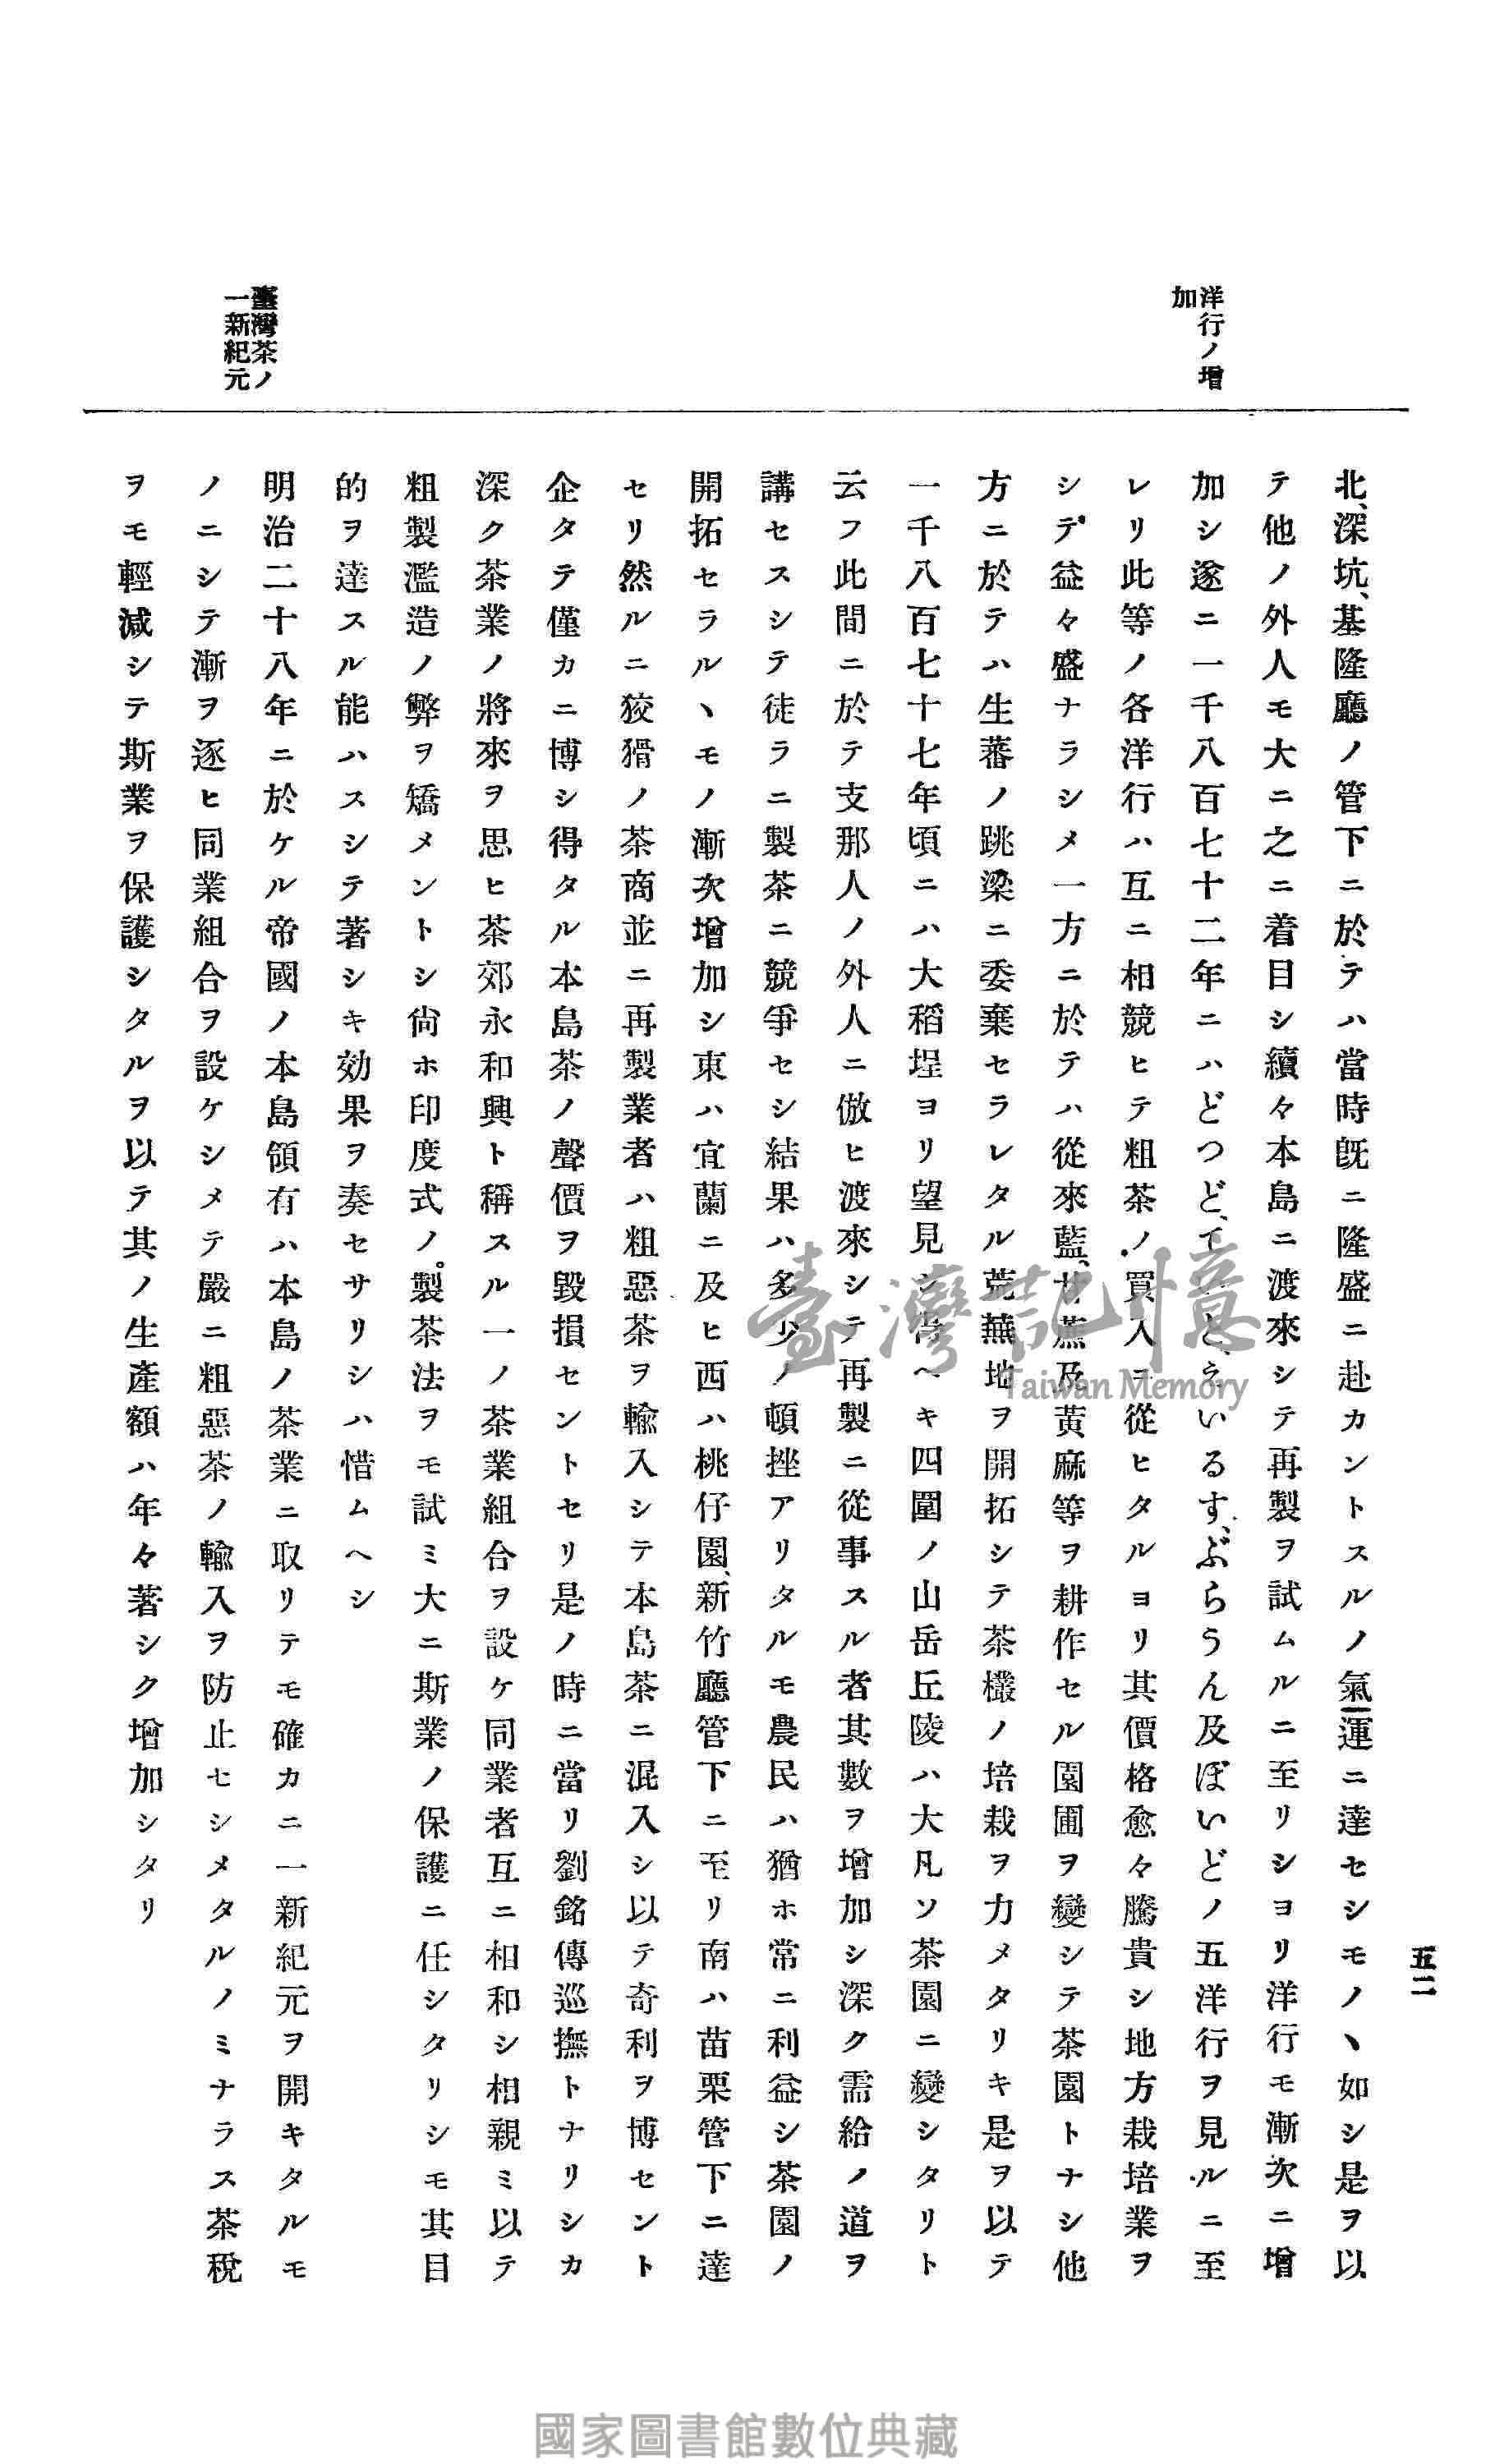 五二
洋行ノ增
加
臺灣茶ノ
一新紀元
北、深坑、基隆廳ノ管下ニ於テハ當時既ニ隆盛ニ赴カントスルノ氣運ニ達セシモノヽ如シ是ヲ以
テ他ノ外人モ大ニ之ニ着目シ續々本島ニ渡來シテ再製ヲ試ムルニ至リショリ洋行モ漸次ニ增
加シ遂ニ一千八百七十二年ニハどつど、てと、えいるす、ぶらうん及ぼいどノ五洋行ヲ見ルニ至
レリ此等ノ各洋行ハ互ニ相競ヒテ粗茶ノ買入ニ從ヒタルヨリ其價格愈々騰貴シ地方栽培業ヲ
シテ益々盛ナラシメ一方ニ於テハ從來藍、甘蔗及黃麻等ヲ耕作セル園圃ヲ變シテ茶園トナシ他
方ニ於テハ生蕃ノ跳梁ニ委棄セラレタル荒蕪地ヲ開拓シテ茶欉ノ培栽ヲ力メタリキ是ヲ以テ
一千八百七十七年頃ニハ大稻埕ヨリ望見シ得ヘキ四圍ノ山岳丘陵ハ大凡ソ茶園ニ變シタリト
云フ此間ニ於テ支那人ノ外人ニ倣ヒ渡來シテ再製ニ從事スル者其數ヲ增加シ深ク需給ノ道ヲ
講セスシテ徒ラニ製茶ニ競爭セシ結果ハ多少ノ頓挫アリタルモ農民ハ猶ホ常ニ利益シ茶園ノ
開拓セラルヽモノ漸次增加シ東ハ宜蘭ニ及ヒ西ハ桃仔園、新竹廳管下ニ至リ南ハ苗栗管下ニ達
セリ然ルニ狡猾ノ茶商並ニ再製業者ハ粗惡茶ヲ輸入シテ本島茶ニ混入シ以テ奇利ヲ博セント
企タテ僅カニ博シ得タル本島茶ノ聲價ヲ毀損セントセリ是ノ時ニ當リ劉銘傳巡撫トナリシカ
深ク茶業ノ將來ヲ思ヒ茶郊永和興ト稱スル一ノ茶業組合ヲ設ケ同業者互ニ相和シ相親ミ以テ
粗製濫造ノ弊ヲ矯メントシ尙ホ印度式ノ製茶法ヲモ試ミ大ニ斯業ノ保護ニ任シタリシモ其目
的ヲ達スル能ハスシテ著シキ効果ヲ奏セサリシハ惜ムヘシ
明治二十八年ニ於ケル帝國ノ本島領有ハ本島ノ茶業ニ取リテモ確カニ一新紀元ヲ開キタルモ
ノニシテ漸ヲ逐ヒ同業組合ヲ設ケシメテ嚴ニ粗惡茶ノ輸入ヲ防止セシメタルノミナラス茶稅
ヲモ輕減シテ斯業ヲ保護シタルヲ以テ其ノ生產額ハ年々著シク增加シタリ
臺灣記憶
Taiwan Memory
國家圖書館數位典藏